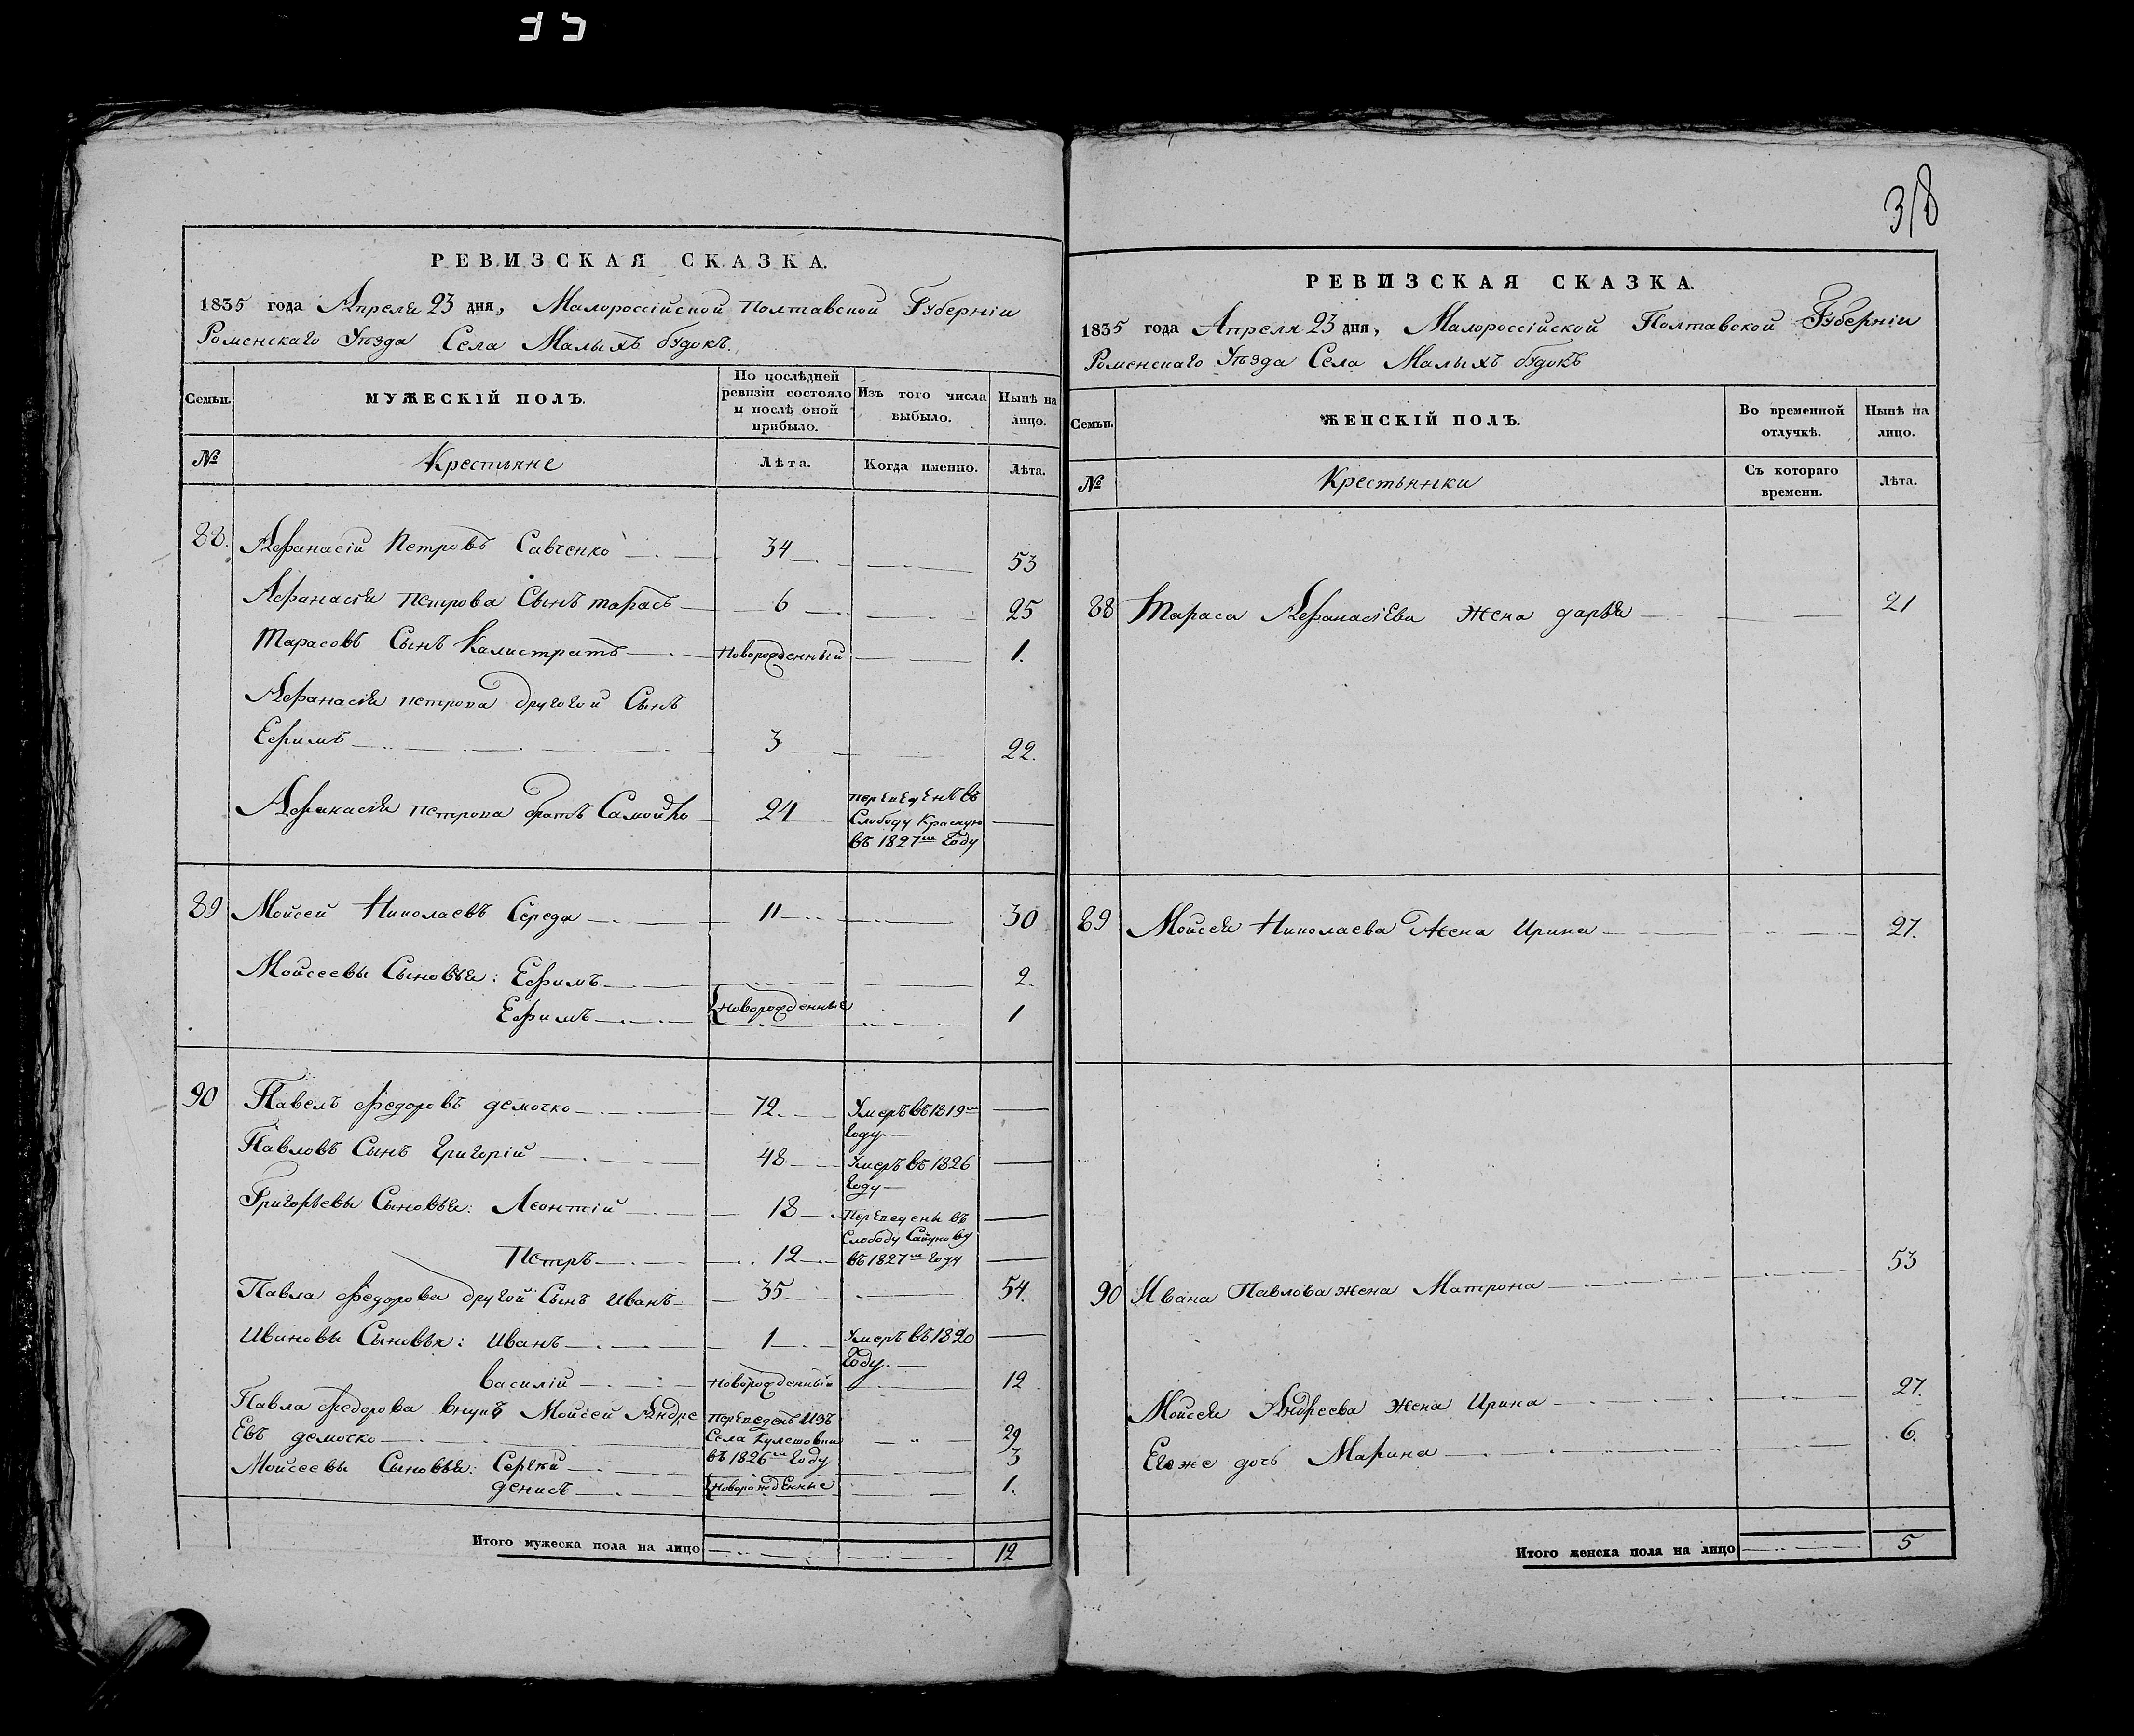 318
РЕВИЗСКАЯ СКАЗКА.
1835 года Апреля 23 дня, Малороссійской Полтавской Губерніи
Роменскаго Уѣзда Села Малыхъ будокъ.
Семьи.
МУЖЕСКІЙ ПОЛЪ.
По послѣдней ревизіи состояло и послѣ оной прибыло.
Изъ того числа выбыло.
Нынѣ на лицо.
№
Крестьяне
Лѣта.
Когда именно.
Лѣта.
88. Афанасій Петровъ Савченко 34 53
Афанасія Петрова Сынъ Тарасъ 6 25
Тарасовъ Сынъ Калистратъ Новорожденный 1.
Афанасія Петрова другой Сынъ
Ефимъ 3 22.
Афанасія Петрова братъ Самойло 24 переведенъ въ
Слободу Красную
въ 1827м Году
89 Мойсей Николаевъ Середа 11 30
Мойсеевы Сыновья: Ефимъ 2.
Ефимъ Новорожденные 1
90 Павелъ Федоровъ демочко 72. Умеръ въ 1819м
Году
Павловъ Сынъ Григорій 48 Умеръ въ 1826
Году
Григорьевы Сыновья: Леонтій 18 Переведены въ
Слободу
Петръ 12 въ 1827м Году
Павла Федорова другой Сынъ Иванъ 35 54.
Ивановы Сыновья: Иванъ 1 Умеръ въ 1820
Году.
Василій Новорожденный 12
Павла Федорова внукъ Мойсей Андре
евъ демочко Переведенъ изъ
Села
въ 1826м Году 29
Мойсеевы Сыновья: Сергій 3
денисъ Новорожденные 1.
Итого мужеска пола на лицо 12
РЕВИЗСКАЯ СКАЗКА.
1835 года Апреля 23 дня, Малороссійской Полтавской Губерніи
Роменскаго Уѣзда Села Малыхъ будокъ
Семьи.
ЖЕНСКІЙ ПОЛЪ.
Во временной отлучкѣ.
Нынѣ на лицо.
№
Крестьянки
Съ котораго времени.
Лѣта.
88 Тараса Афанасіева жена дарья 21
89 Мойсея Николаева жена Ирина 27.
90 Ивана Павлова жена Матрона 53
Мойсея Андреева жена Ирина 27.
Егоже дочь Марина 6.
Итого женска пола на лицо 5